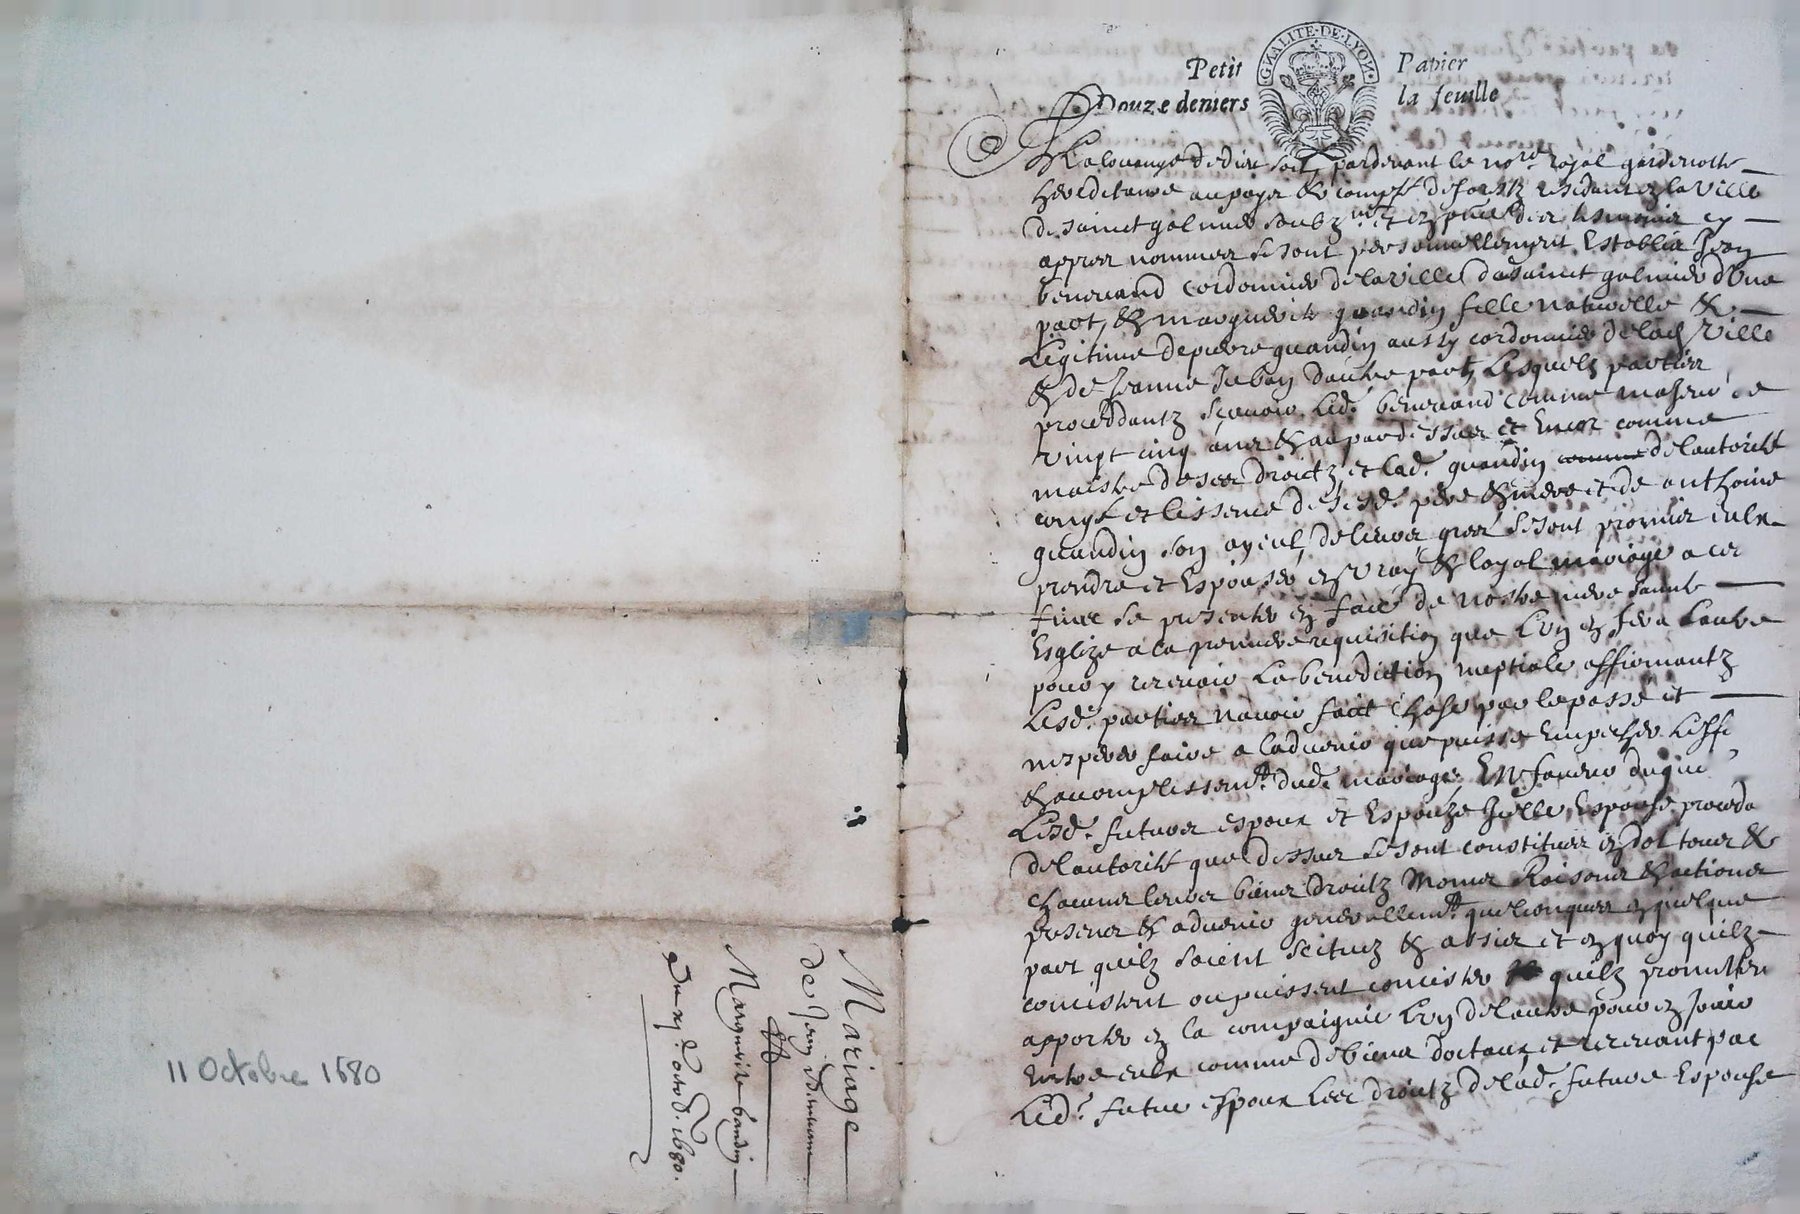 Petit Papier
Douze deniers la feuille
GNALITE·DE·LYON
A la louange de dieu soit pardevant le no.re royal gardenotte
hereditaire au pays & compté de forestz residant en la ville
de sainct galmier soubz.né et en p̃nce des tesmoins cy
appres nommes se sont personnellement establis Jean
benevand cordonnier de la ville de sainct galmier d'une
part, & marguerite guandin fille naturelle &
Legitime de pierre guandin aussy cordonnier de lad. ville
& de Jeanne Juban d'autre part, Lesquelz parties
proceddantz scavoir led. benevand comme majeur de
vingt cinq ans & au par dessus et encor comme
maistre de ses droictz et lad. guandin comme de l'autorité
congé et lissence de sesd. pere & mere et de anthoine
guandin son ayeul, de leurs grés se sont promis entre
prendre et Espouser en vray & loyal mariage a ces
fins se presenter en face de nostre mere saincte
Esglize a la premiere requisition que l'un en fera L'autre
pour y recevoir La benediction nuptiale affirmantz
Lesd. parties n'avoir faict chose par le passé et
n'esperer faire a l'advenir que puisse Empescher L'effe
& accomplissem.t dud. mariage, En faveur duquel
Lesd. futurs espoux et Espouze Icelle Espouse proceda
de l'autorité que dessus se sont constitués en dot tous &
chacuns leurs biens droictz Noms Raisons & actions
presens & advenir generallem.t quelconques en quelque
part quilz soient scitués & assis et en quoy quilz
concistent ou puissent concister quilz promettent
apporter en la compaignie L'un de l'autre pour en jouir
Entre eulx comme de biens doctaux et recevant par
Led. futur espoux Les droictz de lad. future Espouse
Mariage
de Jean benevand
&
Marguerite Gandin
du xj.e octob. 1680.
11 Octobre 1680